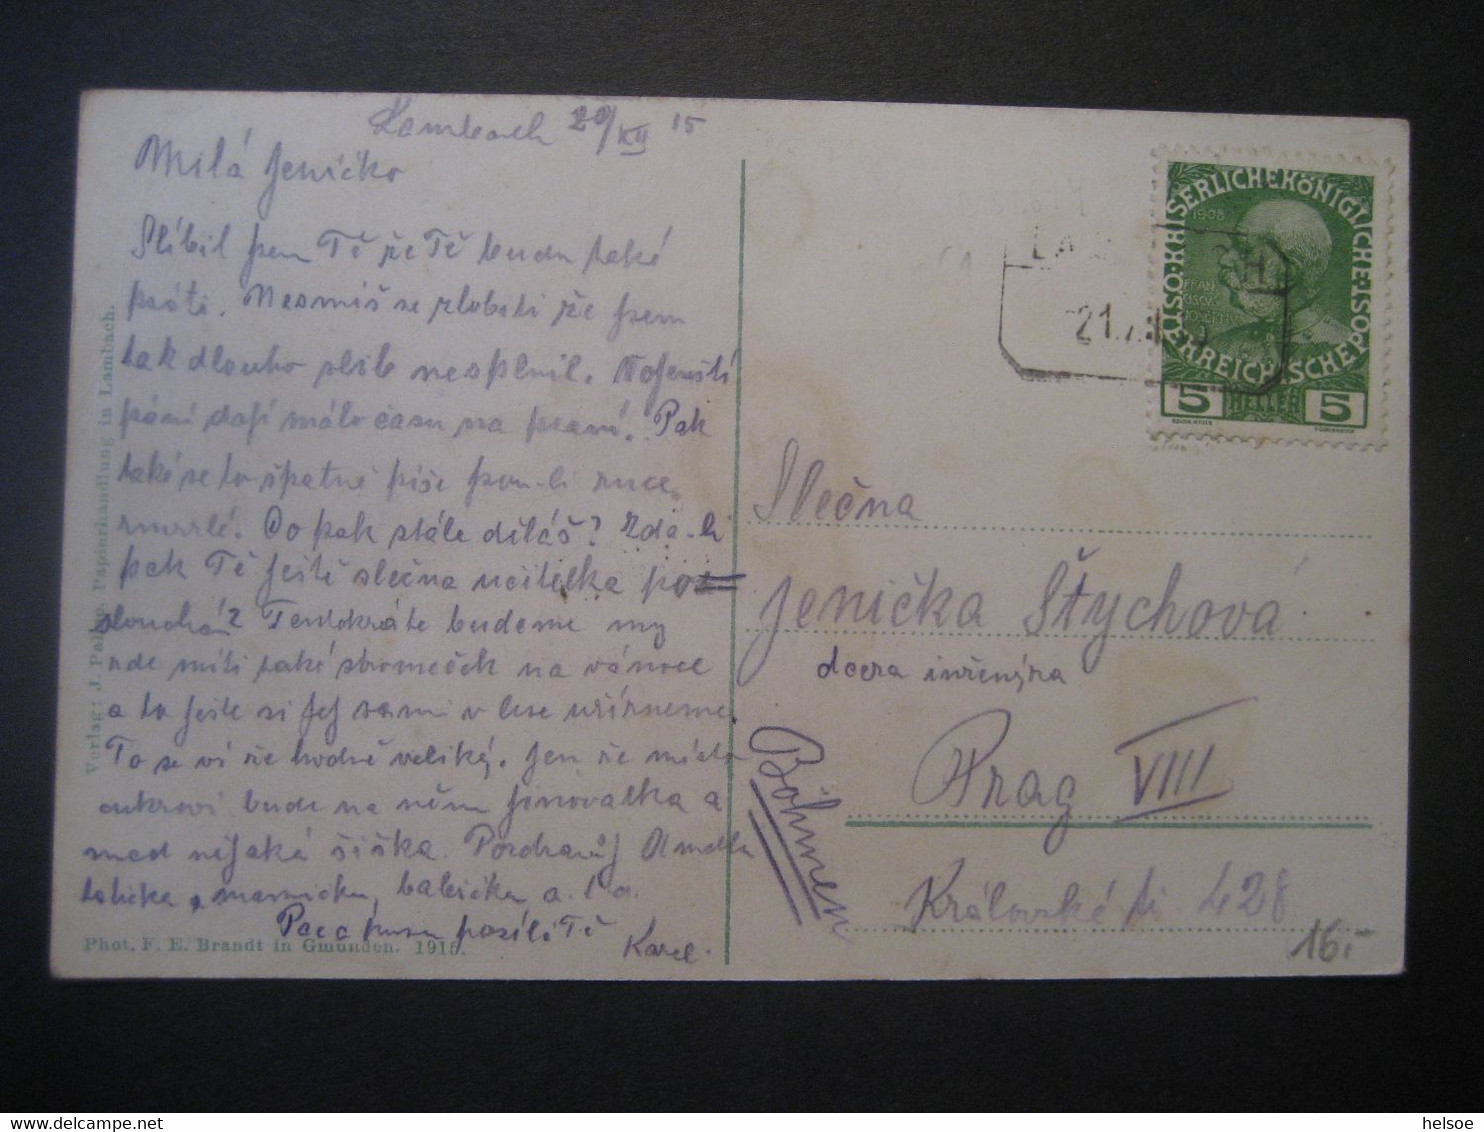 Lambach 20/XII 15
Milá Jeničko
Slíbil jsem Tě že Tě budu také
psáti. Nesmíš se zlobiti že jsem
tak dlouho slib nesplnil. Vojenští
páni dají málo času na psaní. Pak
také se to špatně píše jsou-li ruce
zmrzlé. Co pak stále děláš? Zda-li
pak Tě ještě slečna učitelka po=
slouchá? Tentokráte budeme my
zde míti také stromeček na vánoce
a to ještě si jej sami v lese uřízneme
To se ví že hodně veliký. Jen že místo
cukroví bude na něm jinovatka a
snad nějaká šiška. Pozdravuj
tatíčka, maminku, babičku a. t. d.
Pac a pusu posílá Tě
Karel.
Verlag: J. Papierhandlung in Lambach.
Phot. F. E. Brandt in Gmunden. 1915.
KAISERLICHE KÖNIGLICHE
ÖSTERREICHISCHE POST
1908
FRAN
CISCUS
JOSEPH
5 HELLER 5
LA H
21.
Slečna
Jenička Štychová
dcera inženýra
Prag VIII
Böhmen
Královská tř. 428
16.-
delcampe.net
helsoe